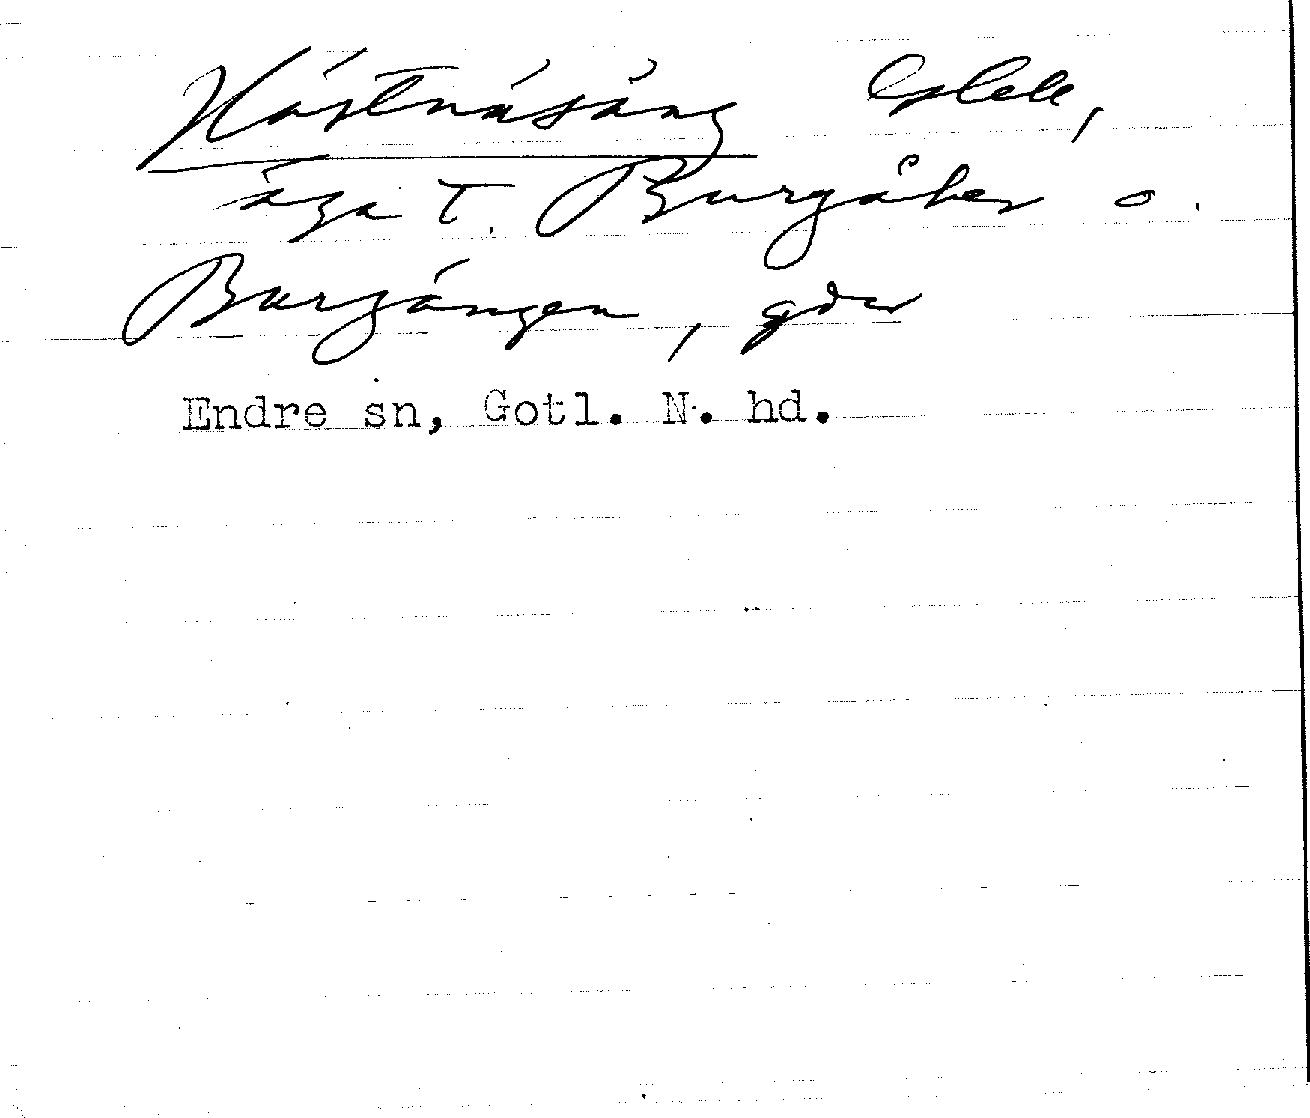 Hästnäsäng Eslek,
äga t. Burgåker o.
Burgängen, gdar
Endre sn, Gotl. N. hd.